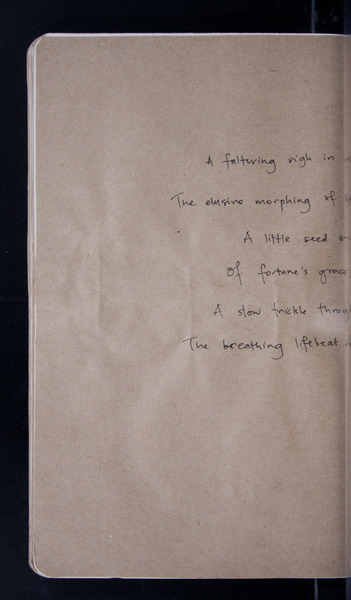 A faltering sigh in
The elusive morphing of
A little seed
Of fortune's grac
A slow trickle throu
The breathing lifebeat